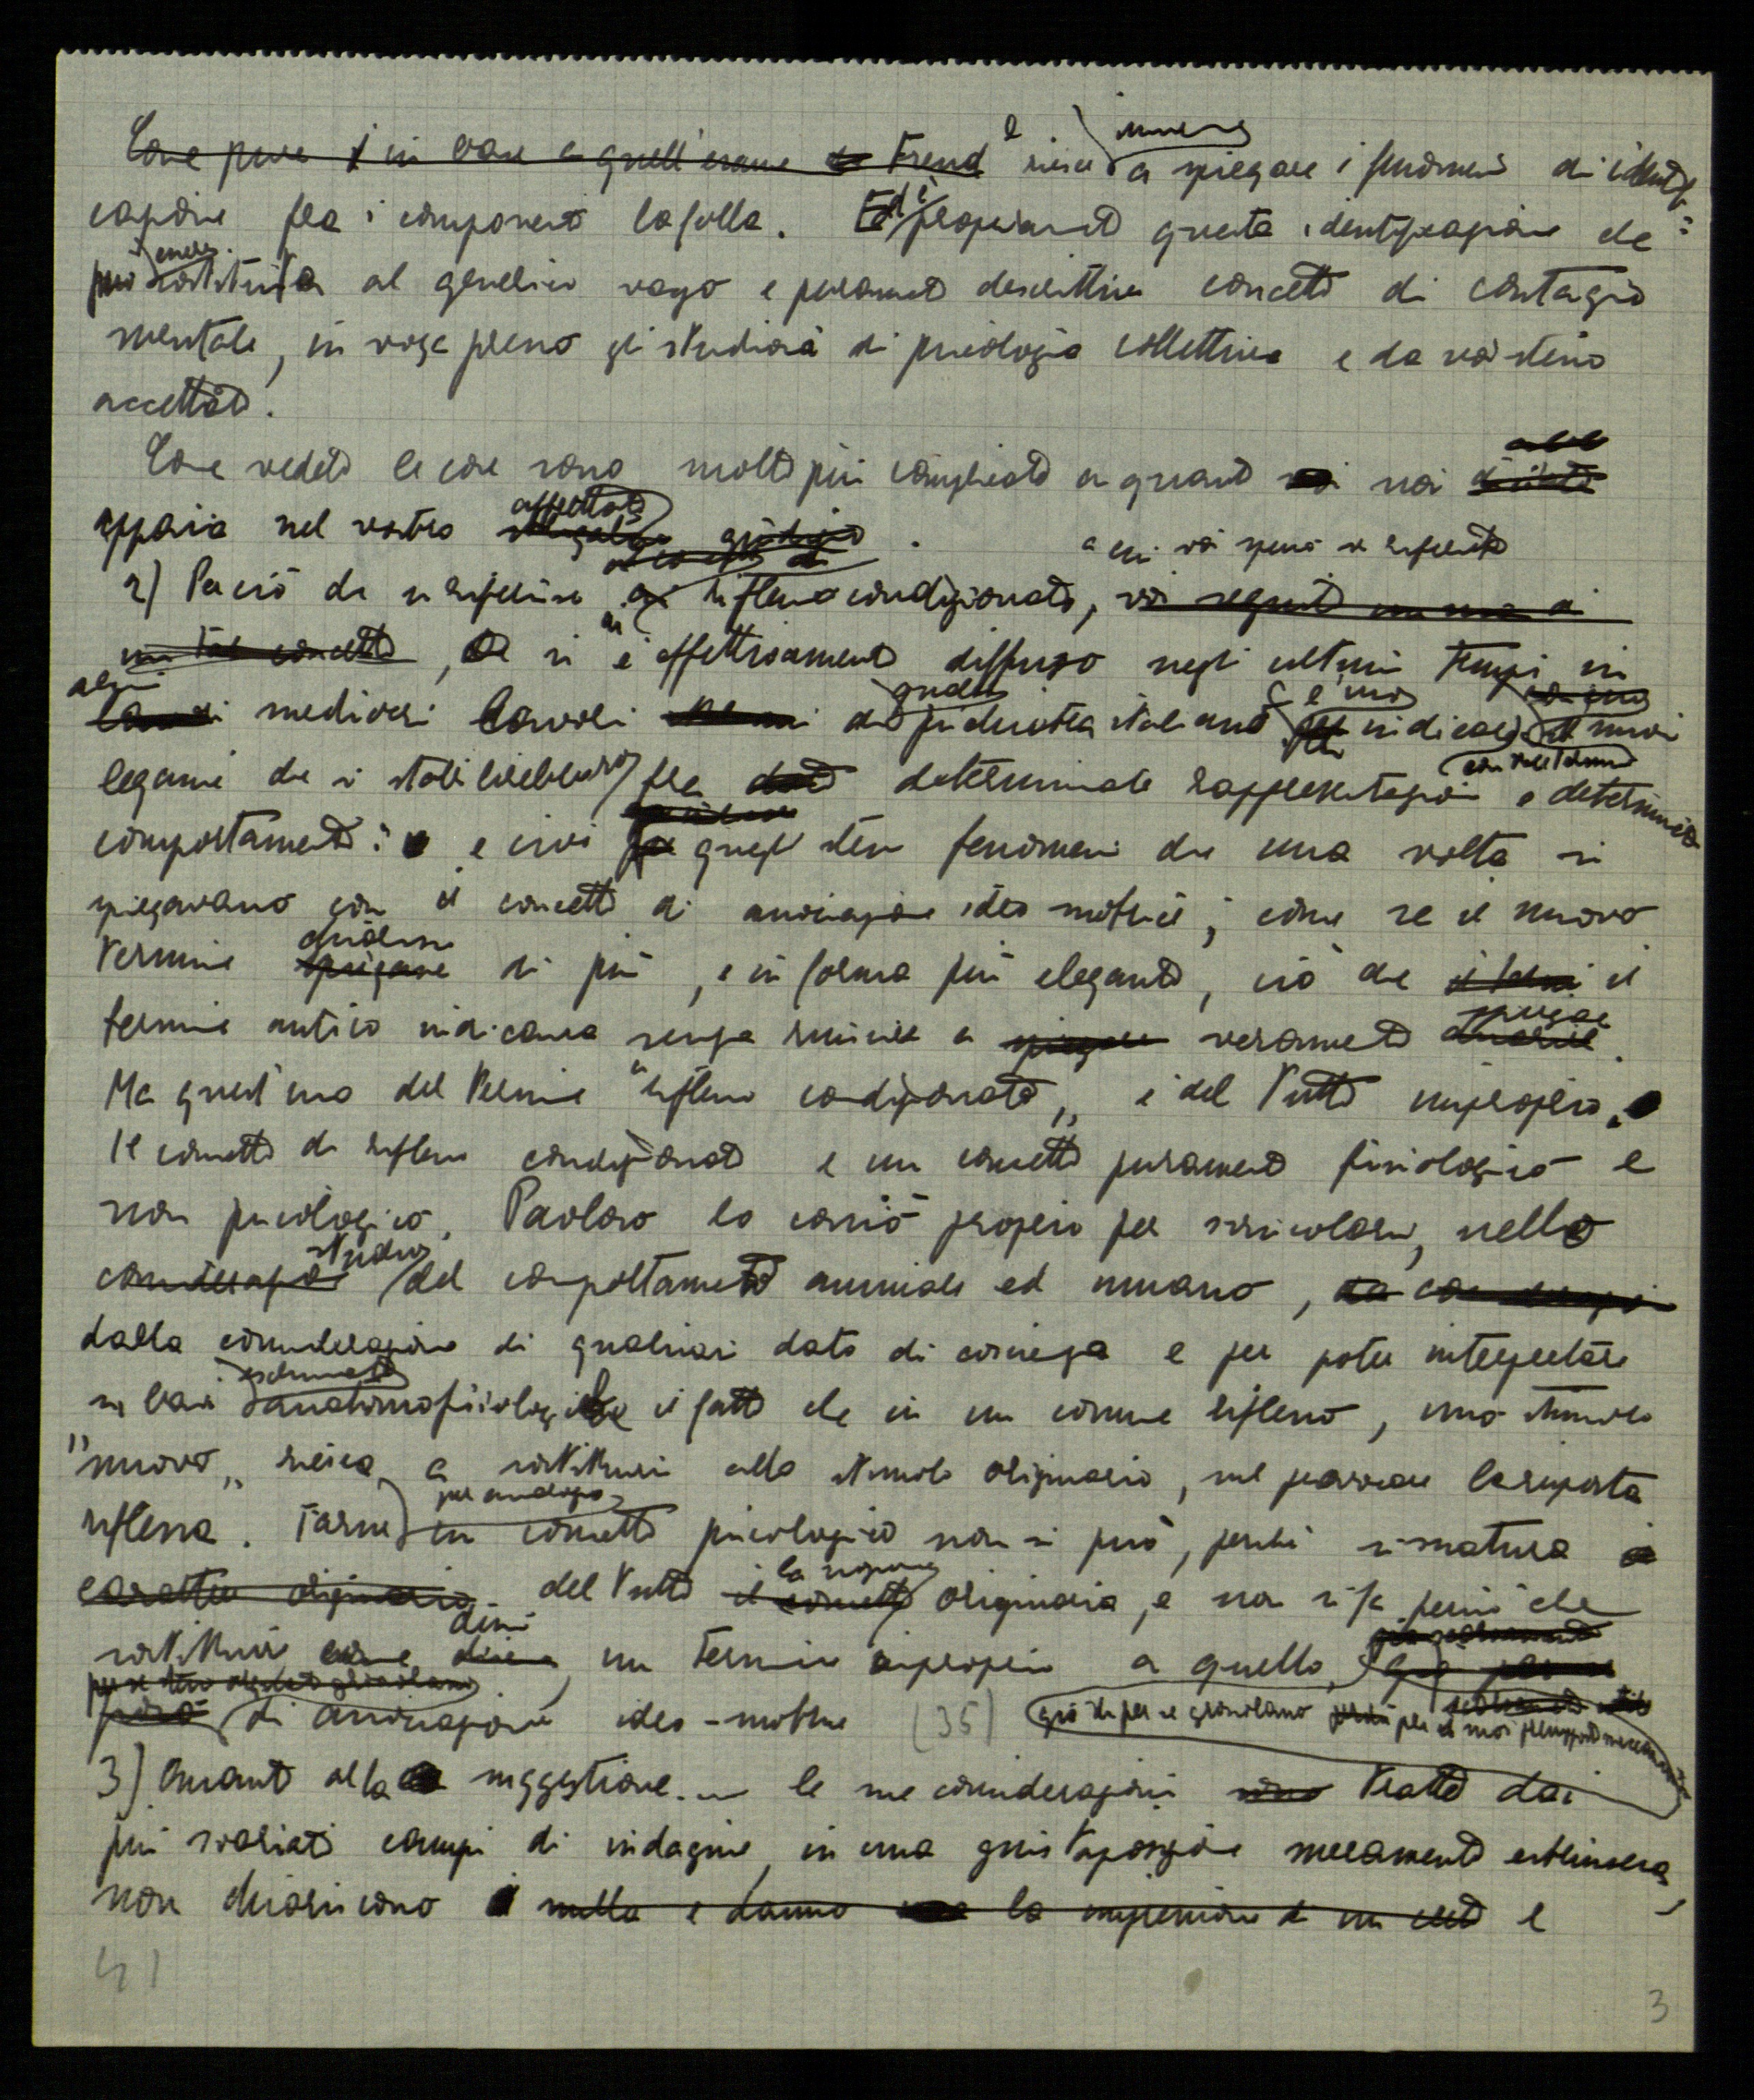 Come pure in base a quell'esame Freud è riesce invece a spiegare i fenomeni di identifi=
cazione fra i componenti la folla. Ed è propriamente questa identificazione che
può essere sostituita al generico vago e puramente descrittivo concetto di contagio
mentale, in voga presso gli studiosi di psicologia collettiva e da voi stesso
accettato.
Come vedete le cose sono molto più complicate di quanto non
appaia nel vostro affrettato giudizio.
2) Per ciò che si riferisce al concetto di riflesso condizionato, a cui voi spesso vi riferite
un tal concetto, si è effettivamente diffuso negli ultimi tempi in
alcuni mediocri lavori di psichiatria italiana l'uso indicare nuovi
legami che si stabilirebbero fra determinate rappresentazioni e determinati
comportamenti: e cioè quegli stessi fenomeni che una volta si
spiegavano con il concetto di associazione ideo motrice; come se il nuovo
termine chiarisse spiegasse di più, e in forma più elegante, ciò che il
termine antico indicava senza riuscire a spiegare veramente
Ma quest'uso del termine "riflesso condizionato" è del tutto improprio.
Il concetto di riflesso condizionato è un concetto puramente fisiologico e
non psicologico. Pavlov lo coniò proprio per svincolarsi, nello
considerazione studio del comportamento animale ed umano,
dalla considerazione di qualsiasi dato di coscienza e per poter interpretare
su basi esclusivamente anatomofisiologiche il fatto che in un comune riflesso, uno stimolo
"nuovo" riesca a sostituirsi allo stimolo originario, nel provocare la risposta
riflessa. Farne per analogia un concetto psicologico non si può, perché si snatura
carattere originario del tutto il concetto la nozione originaria, e non si fa perciò che
sostituire come dissi un termine improprio a quello,
di associazione ideo-motrice (35) già di per sé grossolano per
3) Quanto alla suggestione... le sue considerazioni sono tratte dai
più svariati campi di indagine, in una giustapposizione meramente estrinseca,
non chiariscono nulla e danno la impressione di un e
4)
3